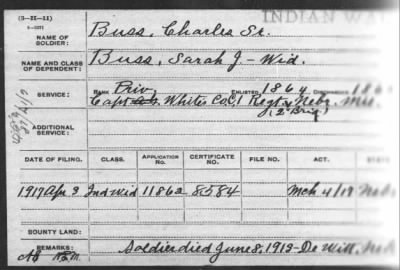 INDIAN WA
(3-II-11)
NAME OF SOLDIER: Buss, Charles Sr.
NAME AND CLASS OF DEPENDENT: Buss, Sarah J. - Wid.
SERVICE: RANK Priv. ENLISTED 1864 DISCHARGED 186
Capt White's Co. C, 1 Regt Nebr. Mil.
(2" Brig)
ADDITIONAL SERVICE:
DATE OF FILING. CLASS. APPLICATION NO. CERTIFICATE NO. FILE NO. ACT. STATE
1917 Apr 3 Ind Wid 11862 8584 Mch 4/17 Neb
BOUNTY LAND:
REMARKS: Soldier died June 8, 1913 - De Witt, Neb